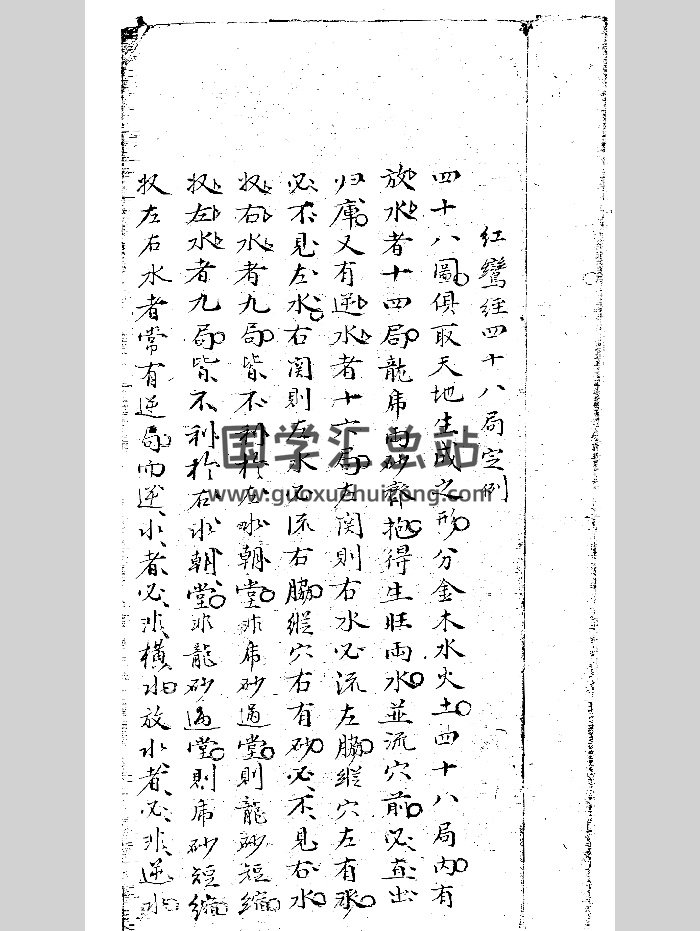 红鸞经四十八局定例
四十八圖俱取天地生成之形分金木水火土四十八局内有
放水者十四局龍虎両砂齊抱得生旺両水並流穴前必直出
归庫又有逆水者十六局左関則右水必流左脇縱穴左有水
必不見左水右関則左水必流右脇縱穴右有砂必不見右水
収右水者九局皆不利於左水朝堂非虎砂過堂則龍砂短縮
収左水者九局皆不利於右水朝堂非龍砂過堂則虎砂短縮
収左右水者常有逆局而逆水者必非橫水放水者必非逆水
国学汇总站
www.guoxuehuizong.com